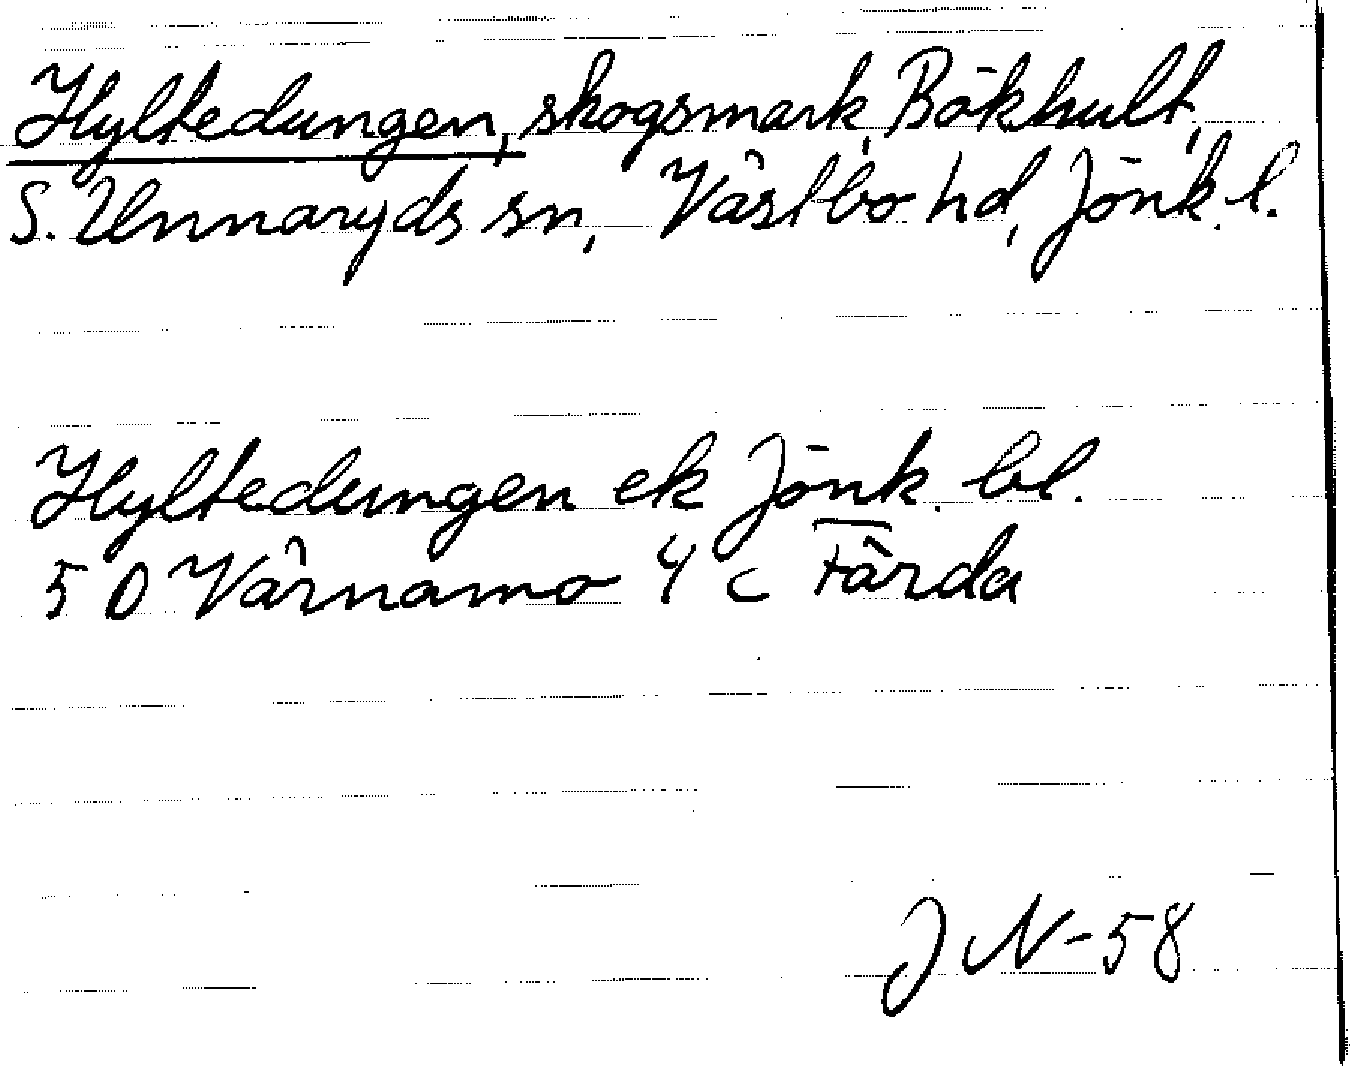 Hyltedungen, skogsmark, Bökhult,
S. Unnaryds sn, Västbo hd, Jönk. l.
Hyltedungen ek Jönk. bl.
50 Värnamo 4 c Färda
JN-58